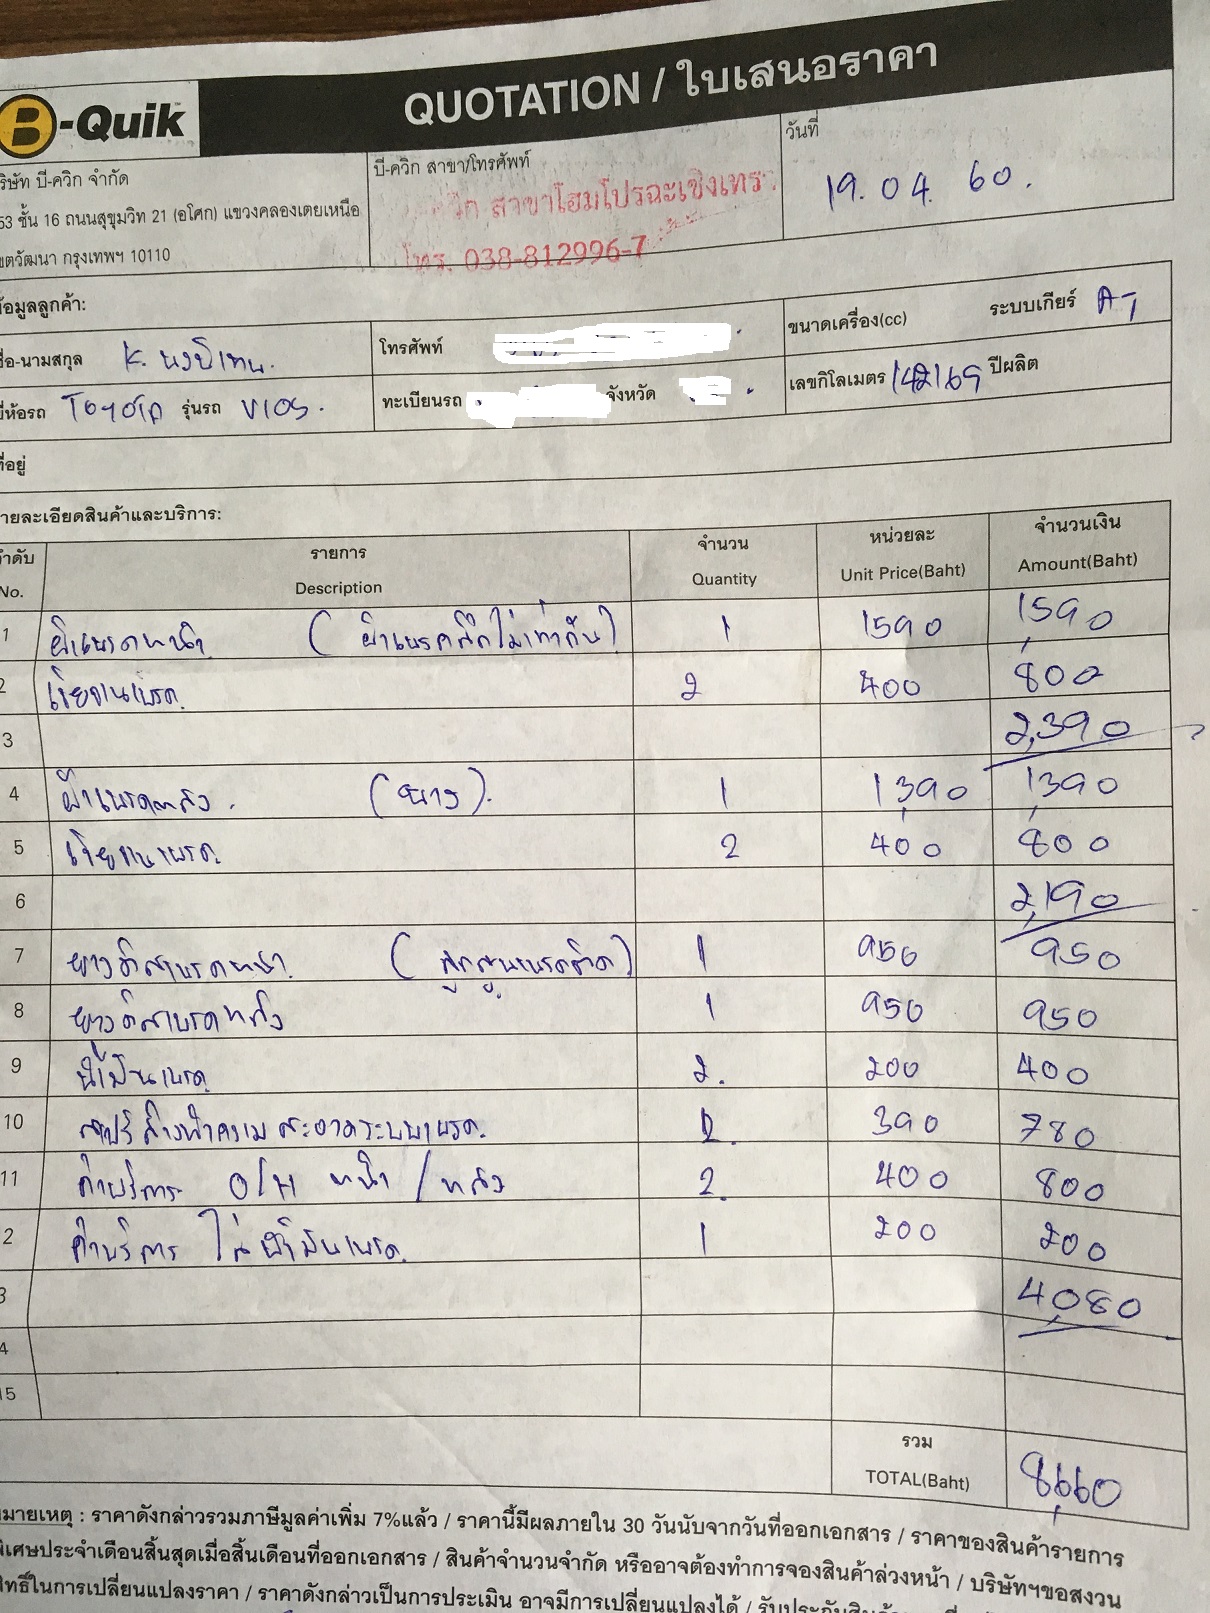 B-Quik
QUOTATION / ใบเสนอราคา
ริษัท บี-ควิก จำกัด
53 ชั้น 16 ถนนสุขุมวิท 21 (อโศก) แขวงคลองเตยเหนือ
ขตวัฒนา กรุงเทพฯ 10110
บี-ควิก สาขา/โทรศัพท์
วิก สาขาโฮมโปรฉะเชิงเทร
โทร. 038-812996-7
วันที่
19. 04. 60.
ข้อมูลลูกค้า:
ชื่อ-นามสกุล K.
โทรศัพท์
ขนาดเครื่อง(cc) ระบบเกียร์ AT
ยี่ห้อรถ TOYOTA รุ่นรถ VIOS.
ทะเบียนรถ จังหวัด
เลขกิโลเมตร 142169 ปีผลิต
ที่อยู่
ายละเอียดสินค้าและบริการ:
ลำดับ รายการ จำนวน หน่วยละ จำนวนเงิน
No. Description Quantity Unit Price(Baht) Amount(Baht)
1 ผ้าเบรคหน้า (ผ้าเบรคสึกไม่เท่ากัน) 1 1590 1,590
2 เจียจานเบรค 2 400 800
3 2,390
4 ผ้าเบรคหลัง. (บาง). 1 1,390 1,390
5 เจียจานเบรค. 2 400 800
6 2,190
7 ยางดิสเบรคหน้า. (ลูกสูบเบรคติด) 1 950 950
8 ยางดิสเบรคหลัง 1 950 950
9 น้ำมันเบรค 2. 200 400
10 สเปรย์ล้างทำความสะอาดระบบเบรค. 2. 390 780
11 ค่าบริการ O/H หน้า / หลัง 2. 400 800
2 ค่าบริการ ไล่น้ำมันเบรค. 1 200 200
3 4,080
4
15
รวม
TOTAL(Baht) 8,660
หมายเหตุ : ราคาดังกล่าวรวมภาษีมูลค่าเพิ่ม 7%แล้ว / ราคานี้มีผลภายใน 30 วันนับจากวันที่ออกเอกสาร / ราคาของสินค้ารายการ
พิเศษประจำเดือนสิ้นสุดเมื่อสิ้นเดือนที่ออกเอกสาร / สินค้าจำนวนจำกัด หรืออาจต้องทำการจองสินค้าล่วงหน้า / บริษัทฯขอสงวน
สิทธิ์ในการเปลี่ยนแปลงราคา / ราคาดังกล่าวเป็นการประเมิน อาจมีการเปลี่ยนแปลงได้ /